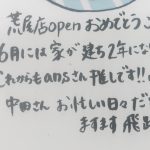 荒尾店openおめでとうご
6月には家が建ち2年にな
これからもansさん推しです!!
中田さん お忙しい日々だ
ますます飛